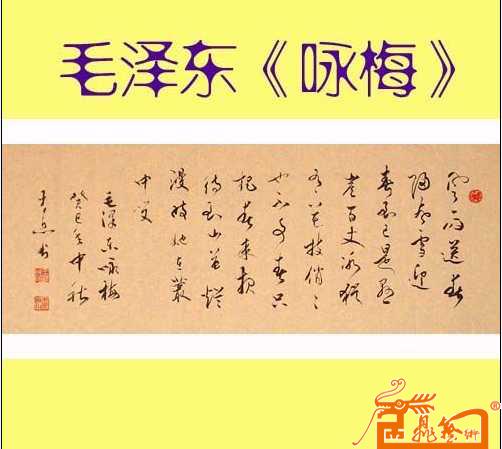 毛泽东《咏梅》
风雨送春
归飞雪迎
春到已是悬
崖百丈冰犹
有花枝俏〻
也不争春只
把春来报
待到山花烂
漫时她在叢
中笑
毛泽东咏梅
癸巳年中秋